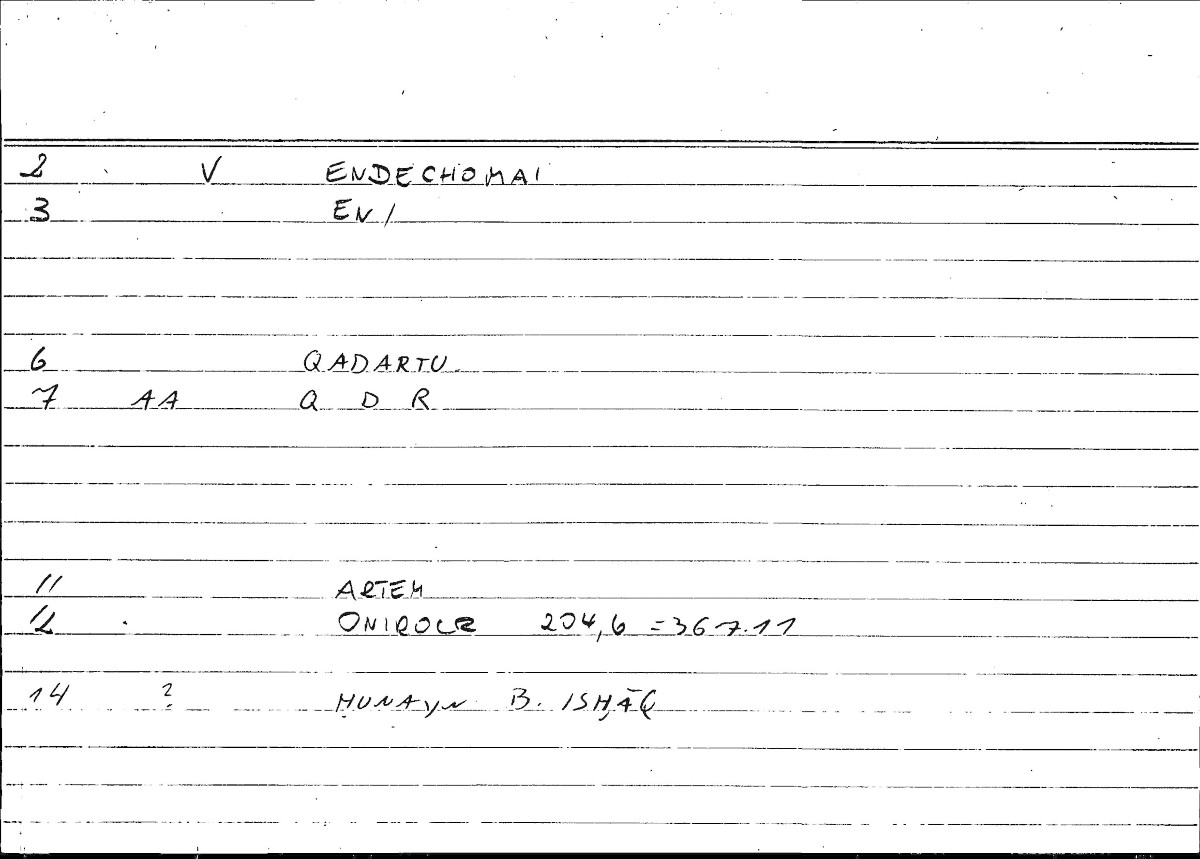 2 V ENDECHOMAI
3 EN/
6 QADARTU
7 AA Q D R
11 ARTEM
12 ONIROCR 204,6 = 367.11
14 ? ḤUNAYN B. ISḤĀQ